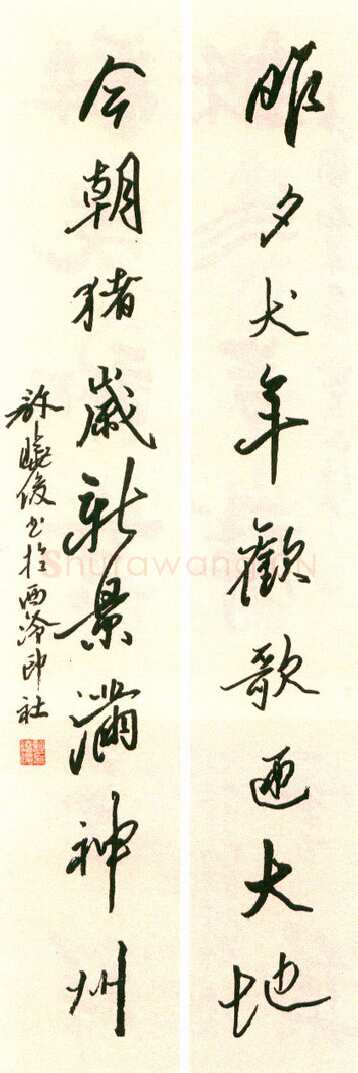 昨夕犬年歡歌迊大地
今朝猪歲新景滿神州
許曉俊书於西泠印社
ShufawangCN